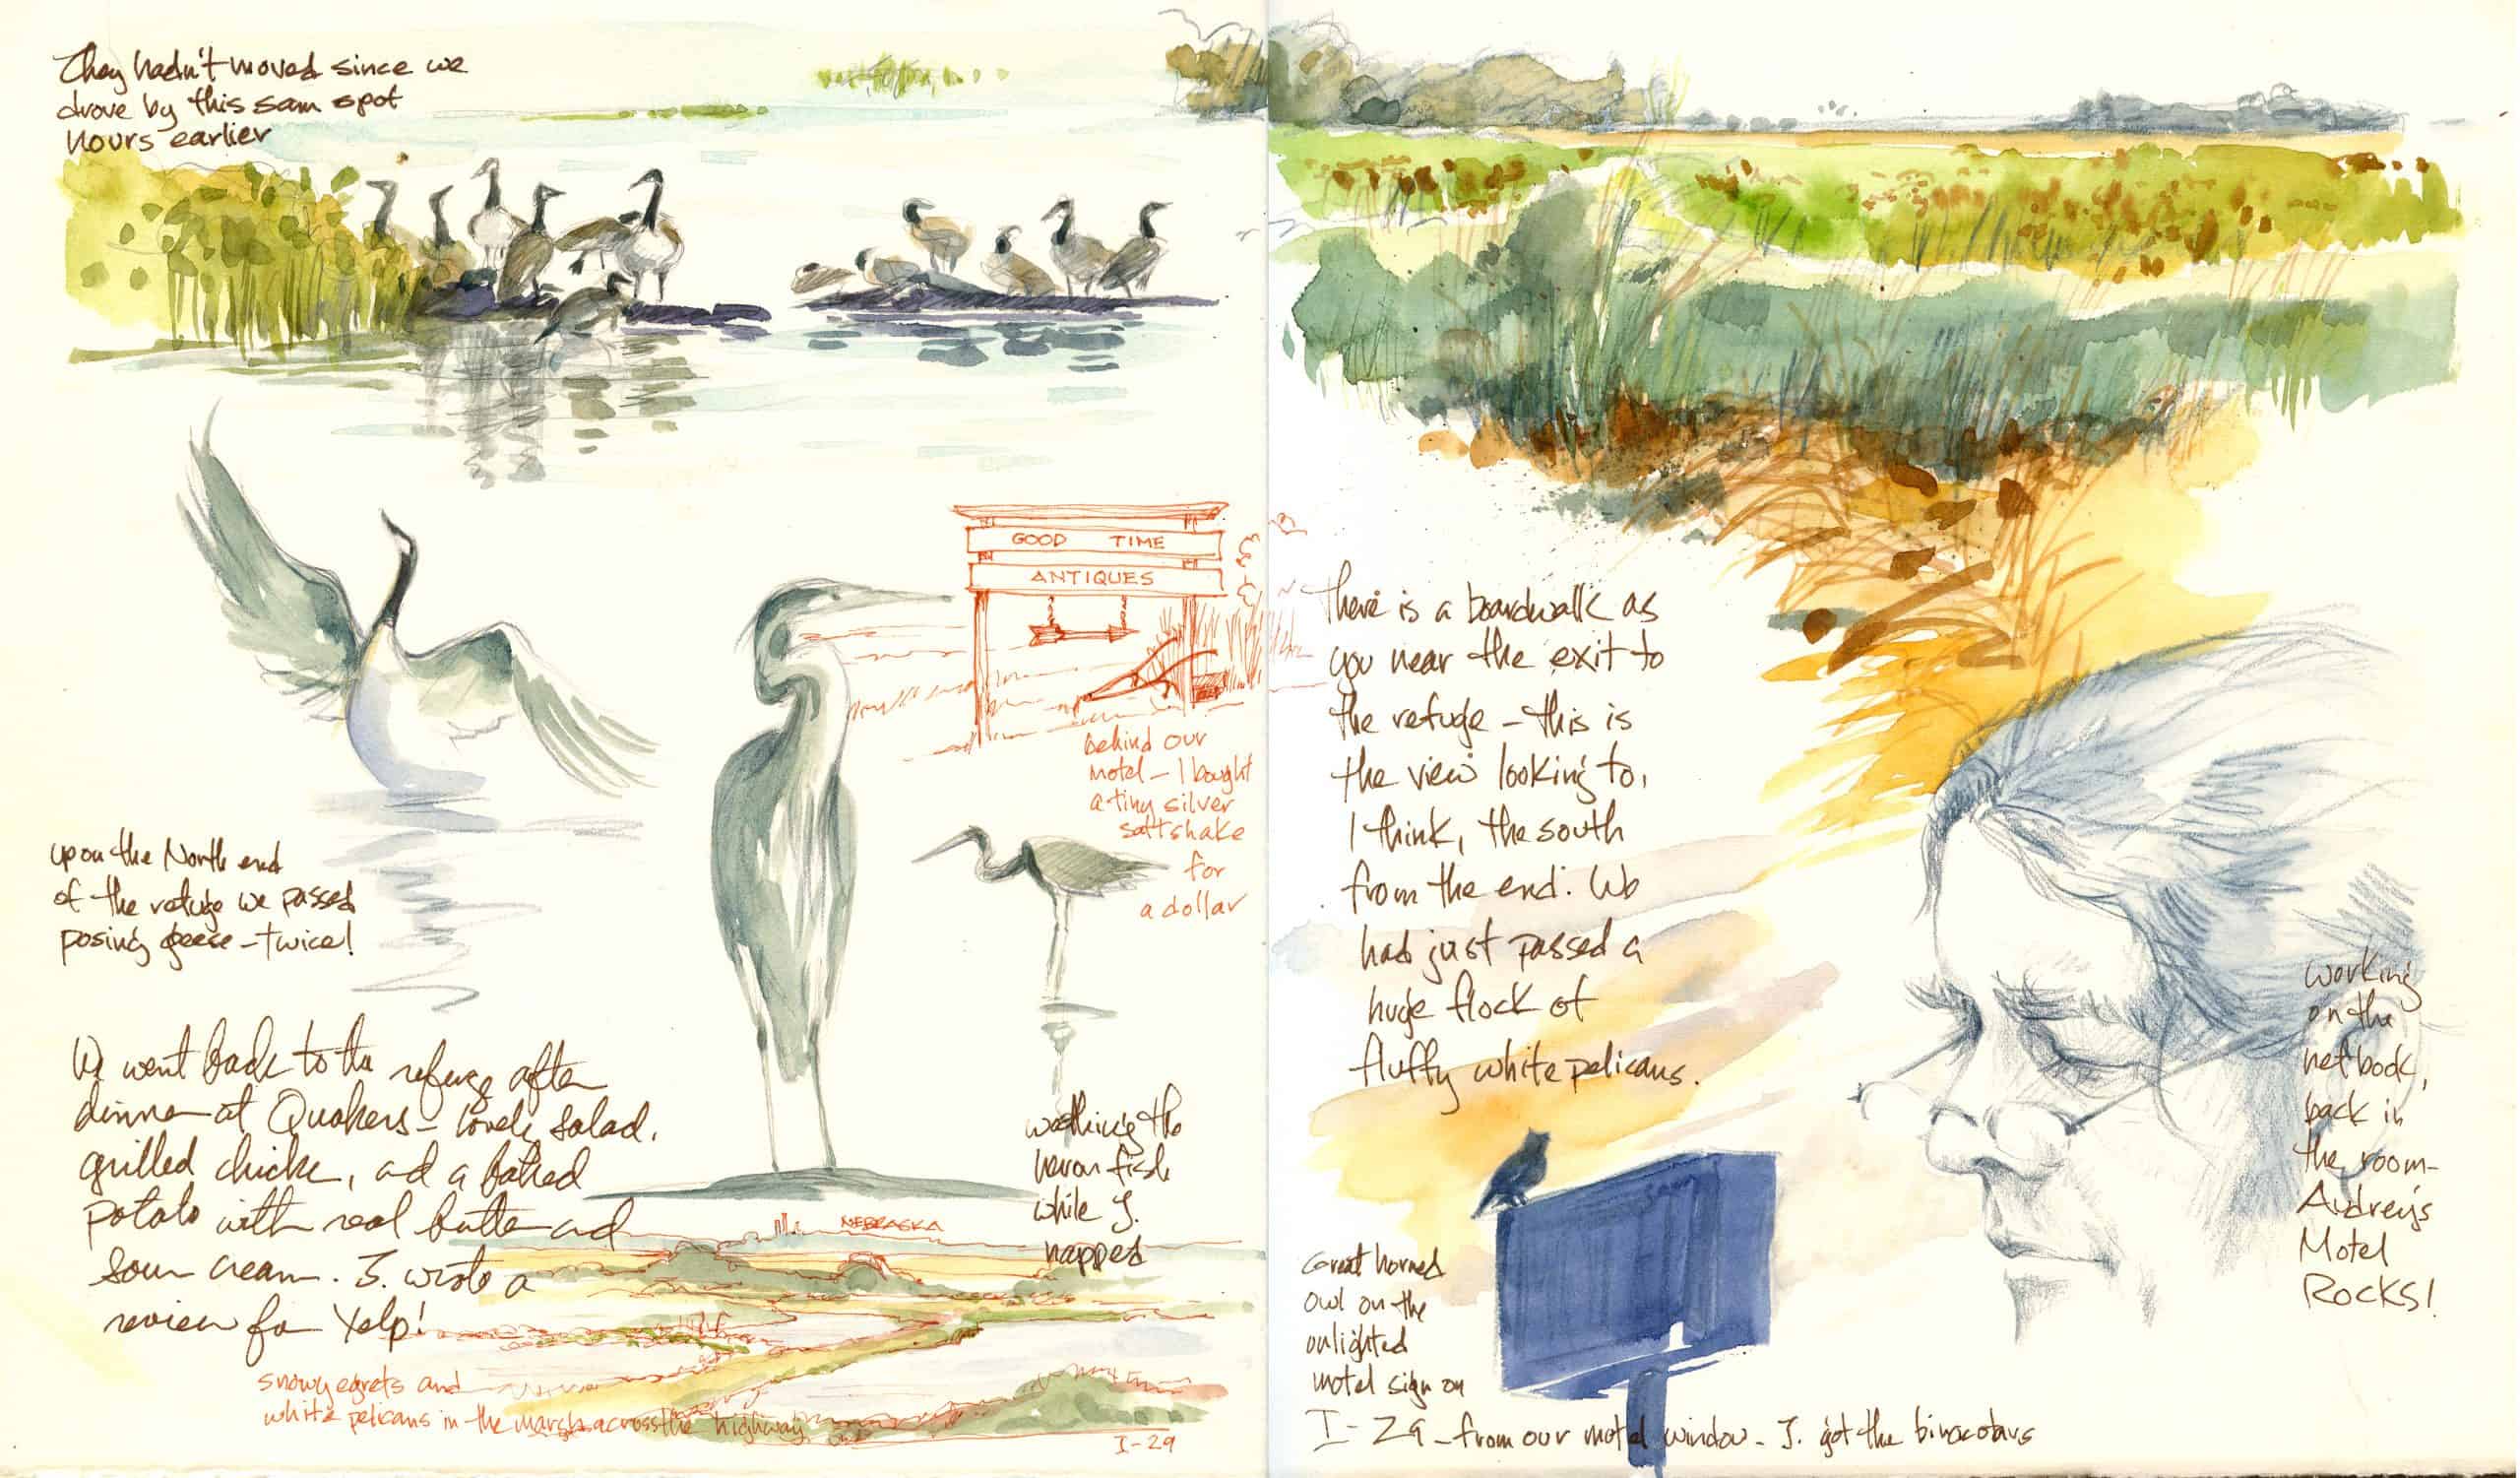 They hadn't moved since we
drove by this sam spot
hours earlier
GOOD TIME
ANTIQUES
behind our
motel – I bought
a tiny silver
saltshake
for
a dollar
up on the North end
of the refuge we passed
posing geese – twice!
We went back to the refuge after
dinner at Quakers – lovely salad,
grilled chicke, and a baked
potato with real butter and
sour cream. J. wrote a
review for Yelp!
watching the
heron fish
while J.
napped
NEBRASKA
snowy egrets and
white pelicans in the marsh across the highway
I-29
There is a boardwalk as
you near the exit to
the refuge – this is
the view looking to,
I think, the south
from the end. We
had just passed a
huge flock of
fluffy white pelicans.
working
on the
netbook,
back in
the room–
Audrey's
Motel
ROCKS!
Great horned
owl on the
unlighted
motel sign on
I-29 – from our motel window – J. got the binoculars